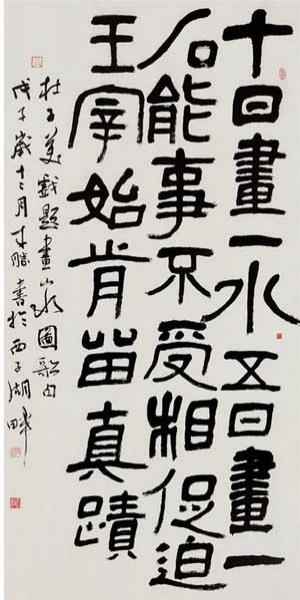 十日畫一水五日畫一
石能事不受相促迫
王宰始肯留真蹟
杜子美戲題畫山水圖歌句
戊子歲十二月書於西子湖畔